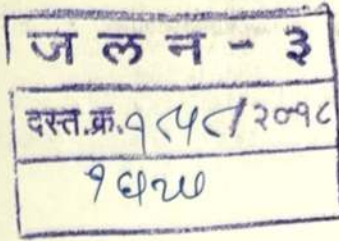 ज ल न - ३
दस्त.क्र.१८५८/२०१८